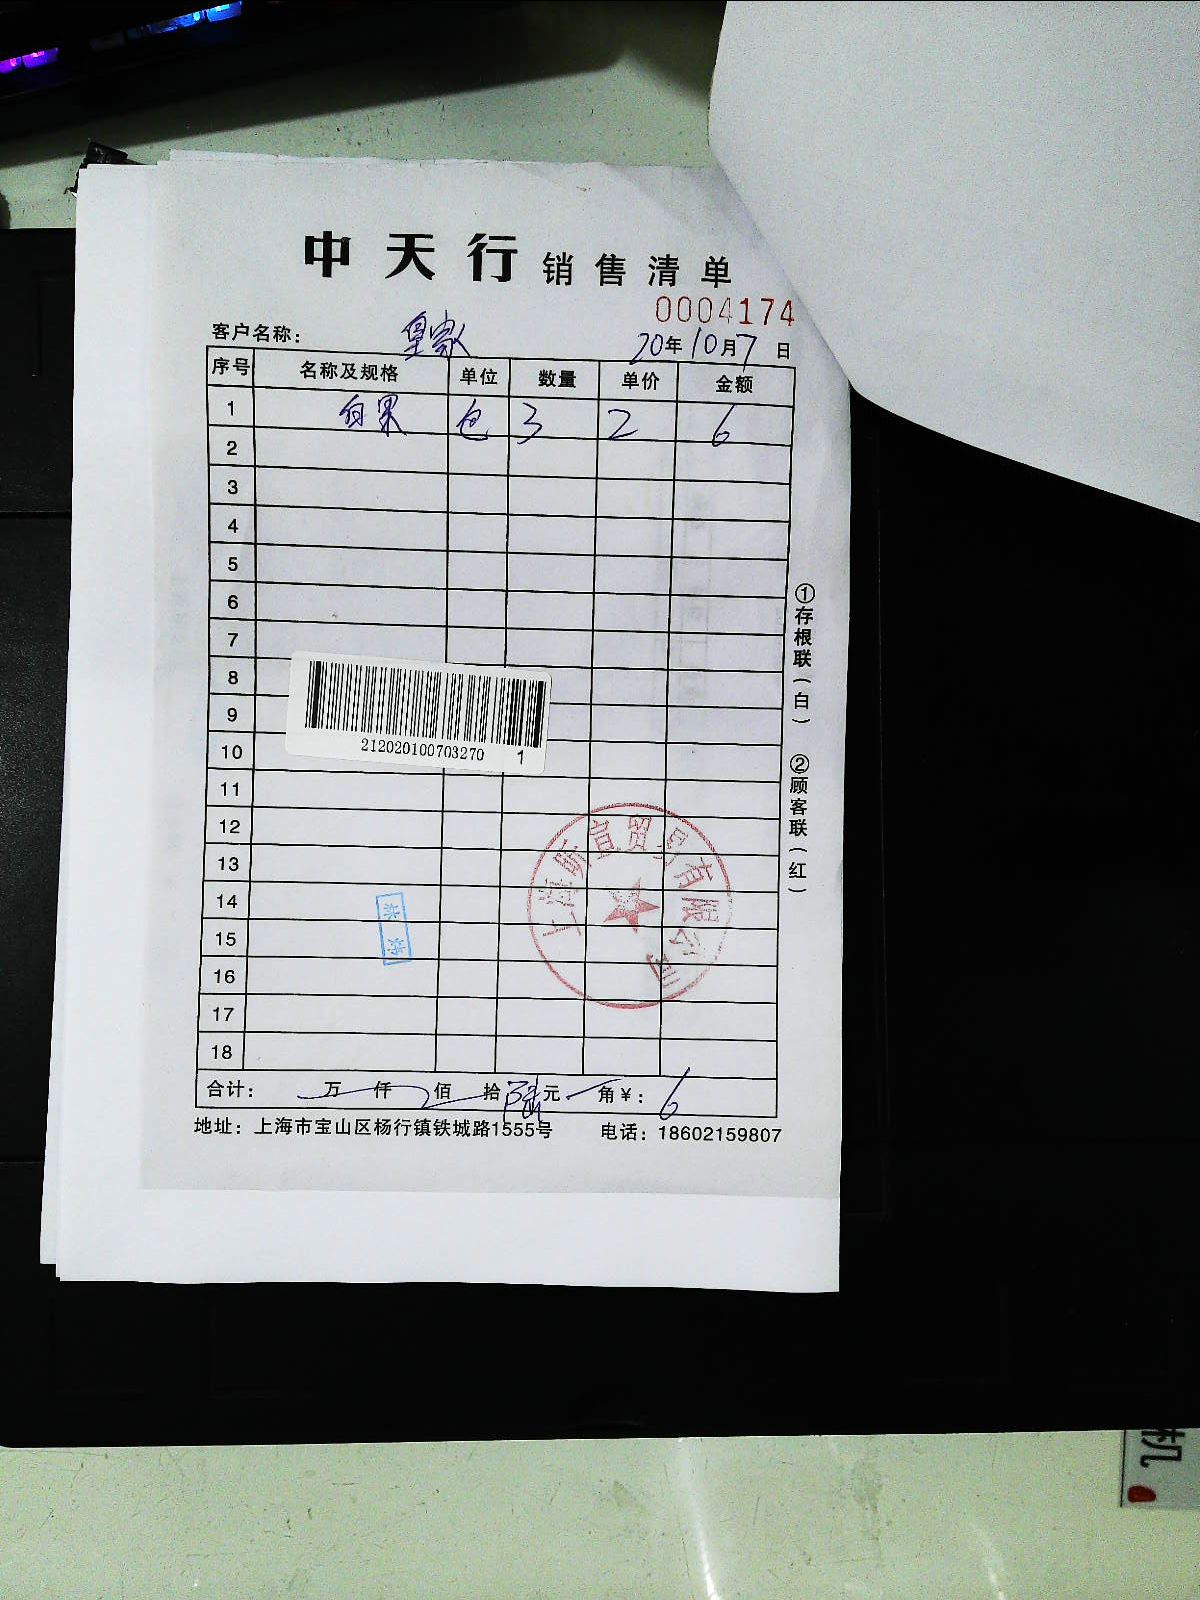 中天行 销售清单
0004174
客户名称： 皇家
20年10月7日
序号 名称及规格 单位 数量 单价 金额
1 白果 包 3 2 6
2
3
4
5
6
7
8
9
10
11
12
13
14
15
16
17
18
212020100703270 1
上海昕宣贸易有限公司
合计： 万 仟 佰 拾 陆 元 角 ¥：6
地址：上海市宝山区杨行镇铁城路1555号 电话：18602159807
①存根联（白） ②顾客联（红）
机